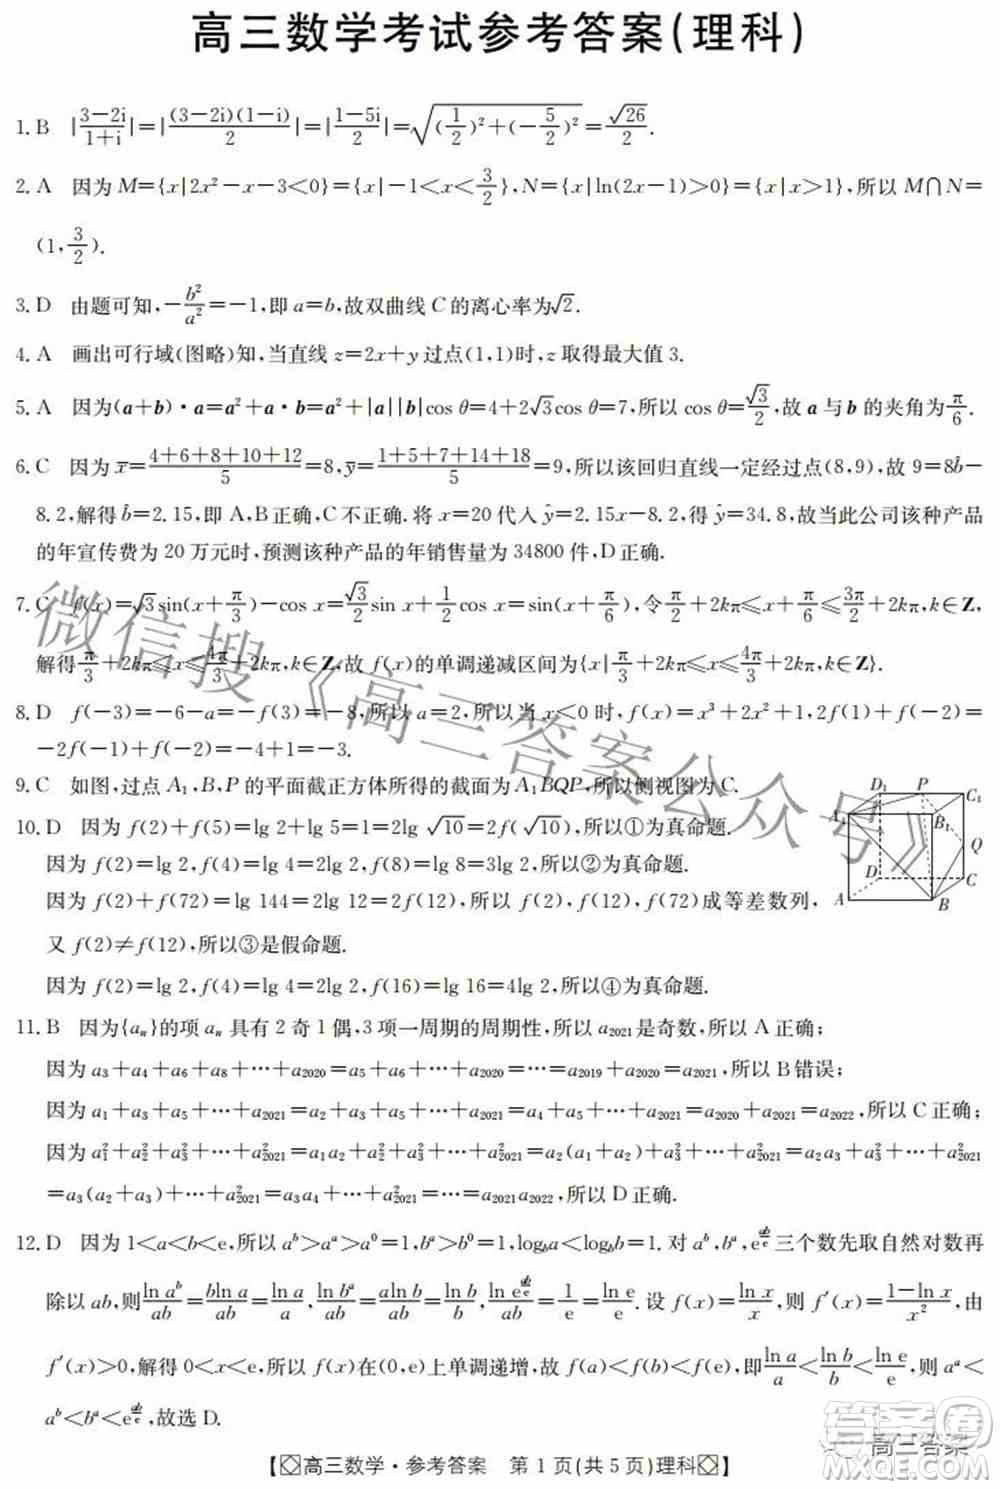 高三数学考试参考答案(理科)
1. B　|(3-2i)/(1+i)|=|(3-2i)(1-i)/2|=|(1-5i)/2|=√((1/2)²+(-5/2)²)=√26/2.
2. A　因为 M={x|2x²-x-3<0}={x|-1<x<3/2},N={x|ln(2x-1)>0}={x|x>1},所以 M∩N=
(1,3/2).
3. D　由题可知,-b²/a²=-1,即 a=b,故双曲线 C 的离心率为√2.
4. A　画出可行域(图略)知,当直线 z=2x+y 过点(1,1)时,z 取得最大值 3.
5. A　因为(a+b)·a=a²+a·b=a²+|a||b|cos θ=4+2√3cos θ=7,所以 cos θ=√3/2,故 a 与 b 的夹角为π/6.
6. C　因为 x̄=(4+6+8+10+12)/5=8,ȳ=(1+5+7+14+18)/5=9,所以该回归直线一定经过点(8,9),故 9=8b̂-
8.2,解得 b̂=2.15,即 A,B 正确,C 不正确.将 x=20 代入 ŷ=2.15x-8.2,得 ŷ=34.8,故当此公司该种产品
的年宣传费为 20 万元时,预测该种产品的年销售量为 34800 件,D 正确.
7. C　f(x)=√3sin(x+π/3)-cos x=√3/2 sin x+1/2 cos x=sin(x+π/6),令π/2+2kπ≤x+π/6≤3π/2+2kπ,k∈Z,
解得π/3+2kπ≤x≤4π/3+2kπ,k∈Z.故 f(x)的单调递减区间为{x|π/3+2kπ≤x≤4π/3+2kπ,k∈Z}.
8. D　f(-3)=-6-a=-f(3)=-8,所以 a=2,所以当 x<0 时,f(x)=x³+2x²+1,2f(-1)=
-2f(-1)=-2f(1)=-4+1=-3.
9. C　如图,过点 A₁,B,P 的平面截正方体所得的截面为 A₁BQP,所以侧视图为 C.
D₁ P C₁
A₁ B₁
Q
D C
A B
10. D　因为 f(2)+f(5)=lg 2+lg 5=1=2lg √10=2f(√10),所以①为真命题.
因为 f(2)=lg 2,f(4)=lg 4=2lg 2,f(8)=lg 8=3lg 2,所以②为真命题.
因为 f(2)+f(72)=lg 144=2lg 12=2f(12),所以 f(2),f(12),f(72)成等差数列,
又 f(2)≠f(12),所以③是假命题.
因为 f(2)=lg 2,f(4)=lg 4=2lg 2,f(16)=lg 16=4lg 2,所以④为真命题.
11. B　因为{aₙ}的项 aₙ 具有 2 奇 1 偶,3 项一周期的周期性,所以 a₂₀₂₁是奇数,所以 A 正确;
因为 a₃+a₄+a₆+a₈+⋯+a₂₀₂₀=a₅+a₆+a₈+⋯+a₂₀₂₀=⋯=a₂₀₁₉+a₂₀₂₀=a₂₀₂₁,所以 B 错误;
因为 a₁+a₃+a₅+⋯+a₂₀₂₁=a₂+a₃+a₅+⋯+a₂₀₂₁=a₄+a₅+⋯+a₂₀₂₁=⋯=a₂₀₂₀+a₂₀₂₁=a₂₀₂₂,所以 C 正确;
因为 a₁²+a₂²+a₃²+⋯+a₂₀₂₁²=a₁a₂+a₂²+a₃²+⋯+a₂₀₂₁²=a₂(a₁+a₂)+a₃²+⋯+a₂₀₂₁²=a₂a₃+a₃²+⋯+a₂₀₂₁²
=a₃(a₂+a₃)+⋯+a₂₀₂₁²=a₃a₄+⋯+a₂₀₂₁²=⋯=a₂₀₂₁a₂₀₂₂,所以 D 正确.
12. D　因为 1<a<b<e,所以 a^b>a^a>a⁰=1,b^a>b⁰=1,log_b a<log_b b=1.对 a^b,b^a,e^(ab/e)三个数先取自然对数再
除以 ab,则 ln a^b/ab=bln a/ab=ln a/a,ln b^a/ab=aln b/ab=ln b/b,ln e^(ab/e)/ab=(ab/e)/ab=1/e=ln e/e.设 f(x)=ln x/x,则 f′(x)=(1-ln x)/x²,由
f′(x)>0,解得 0<x<e,所以 f(x)在(0,e)上单调递增,故 f(a)<f(b)<f(e),即 ln a/a<ln b/b<ln e/e,则 a^a<
a^b<b^a<e^(ab/e),故选 D.
【高三数学·参考答案　第 1 页(共 5 页)理科】
微信搜《高三答案公众号》
高三答案
答案圈